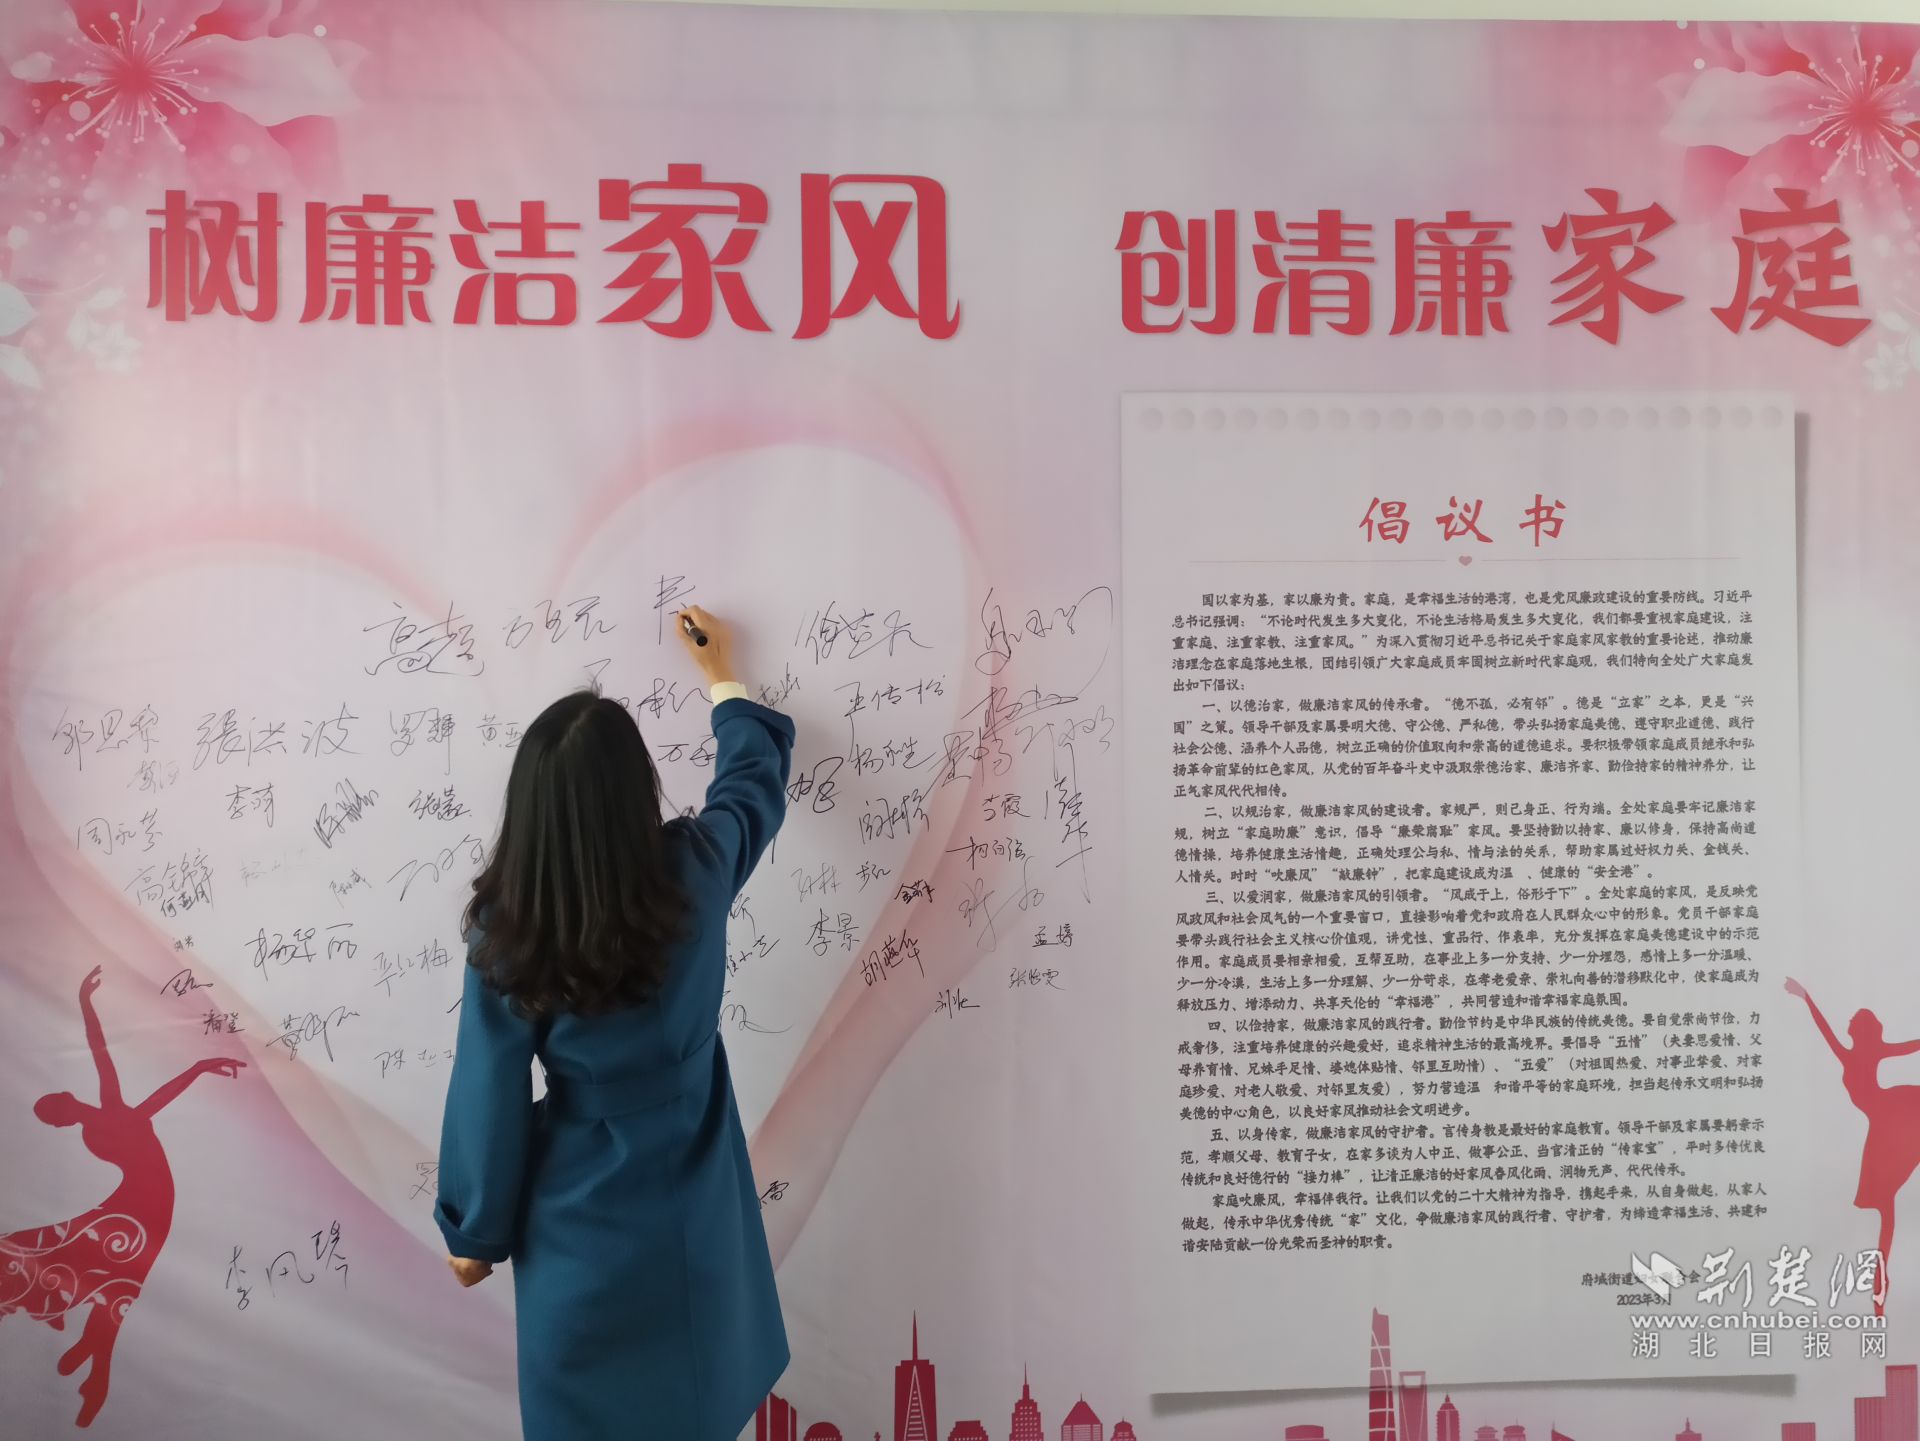 树廉洁家风 创清廉家庭
倡议书
国以家为基，家以廉为贵。家庭，是幸福生活的港湾，也是党风廉政建设的重要防线。习近平
总书记强调：“不论时代发生多大变化，不论生活格局发生多大变化，我们都要重视家庭建设，注
重家庭、注重家教、注重家风。”为深入贯彻习近平总书记关于家庭家风家教的重要论述，推动廉
洁理念在家庭落地生根，团结引领广大家庭成员牢固树立新时代家庭观，我们特向全处广大家庭发
出如下倡议：
一、以德治家，做廉洁家风的传承者。“德不孤，必有邻”。德是“立家”之本，更是“兴
国”之策。领导干部及家属要明大德、守公德、严私德，带头弘扬家庭美德、遵守职业道德、践行
社会公德、涵养个人品德，树立正确的价值取向和崇高的道德追求。要积极带领家庭成员继承和弘
扬革命前辈的红色家风，从党的百年奋斗史中汲取崇德治家、廉洁齐家、勤俭持家的精神养分，让
正气家风代代相传。
二、以规治家，做廉洁家风的建设者。家规严，则己身正、行为端。全处家庭要牢记廉洁家
规，树立“家庭助廉”意识，倡导“廉荣腐耻”家风。要坚持勤以持家、廉以修身，保持高尚道
德情操，培养健康生活情趣，正确处理公与私、情与法的关系，帮助家属过好权力关、金钱关、
人情关。时时“吹廉风”“敲廉钟”，把家庭建设成为温 、健康的“安全港”。
三、以爱润家，做廉洁家风的引领者。“风成于上，俗形于下”。全处家庭的家风，是反映党
风政风和社会风气的一个重要窗口，直接影响着党和政府在人民群众心中的形象。党员干部家庭
要带头践行社会主义核心价值观，讲党性、重品行、作表率，充分发挥在家庭美德建设中的示范
作用。家庭成员要相亲相爱，互帮互助，在事业上多一分支持、少一分埋怨，感情上多一分温暖、
少一分冷漠，生活上多一分理解、少一分苛求，在孝老爱亲、崇礼向善的潜移默化中，使家庭成为
释放压力、增添动力、共享天伦的“幸福港”，共同营造和谐幸福家庭氛围。
四、以俭持家，做廉洁家风的践行者。勤俭节约是中华民族的传统美德。要自觉崇尚节俭，力
戒奢侈，注重培养健康的兴趣爱好，追求精神生活的最高境界。要倡导“五情”（夫妻恩爱情、父
母养育情、兄妹手足情、婆媳体贴情、邻里互助情）、“五爱”（对祖国热爱、对事业挚爱、对家
庭珍爱、对老人敬爱、对邻里友爱），努力营造温 和谐平等的家庭环境，担当起传承文明和弘扬
美德的中心角色，以良好家风推动社会文明进步。
五、以身传家，做廉洁家风的守护者。言传身教是最好的家庭教育。领导干部及家属要躬亲示
范，孝顺父母、教育子女，在家多谈为人中正、做事公正、当官清正的“传家宝”，平时多传优良
传统和良好德行的“接力棒”，让清正廉洁的好家风春风化雨、润物无声、代代传承。
家庭吹廉风，幸福伴我行。让我们以党的二十大精神为指导，携起手来，从自身做起，从家人
做起，传承中华优秀传统“家”文化，争做廉洁家风的践行者、守护者，为缔造幸福生活、共建和
谐安陆贡献一份光荣而圣神的职责。
府城街道妇女联合会
2023年3月
高超
徐芸长
邹思黎 張洪波 罗辉 黄亚
王传松
杨和生
李萌
张慧
周永芬
高锦辉
何莲用
肖霞
柯向强
李景
杨翠丽
严红梅
孟婷
胡燕华
张晓雯
潘登
李凤琴
荆楚网
www.cnhubei.com
湖北日报网